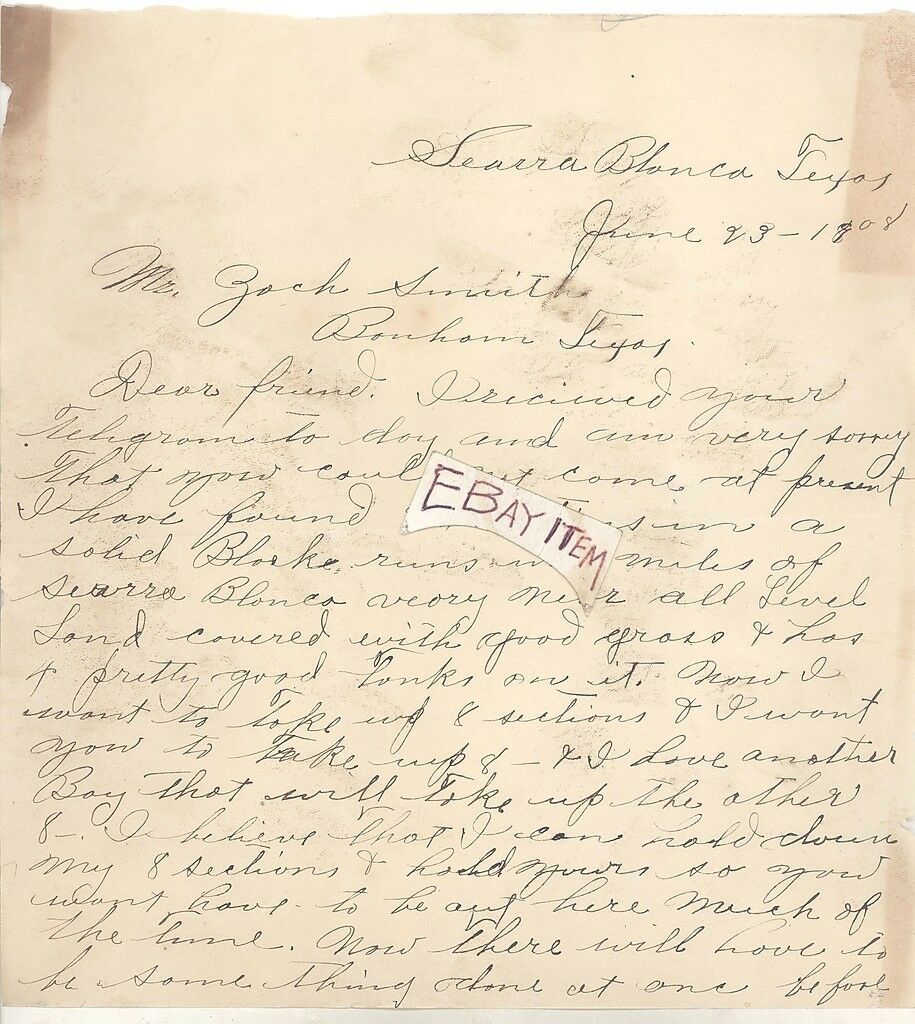 Searra Blanca Texas
June 23 - 1908
Mr. Zach Smith
Bonham Texas.
Dear friend. I recieved your
Telegram to day and am very sorry
That now could come at present
I have found in a
solid Blocke runs in miles of
Searra Blanca veory near all Level
Land covered with good grass & has
4 pretty good Tanks on it. Now I
want to Take up 8 sections & I want
you to Take up 8 - & I have another
Boy that will Take up the other
8 -. I believe that I can hold down
my 8 sections & hold yours so you
wont have to be out here much of
the time. Now there will have to
be some thing done at onc before
EBAY ITEM